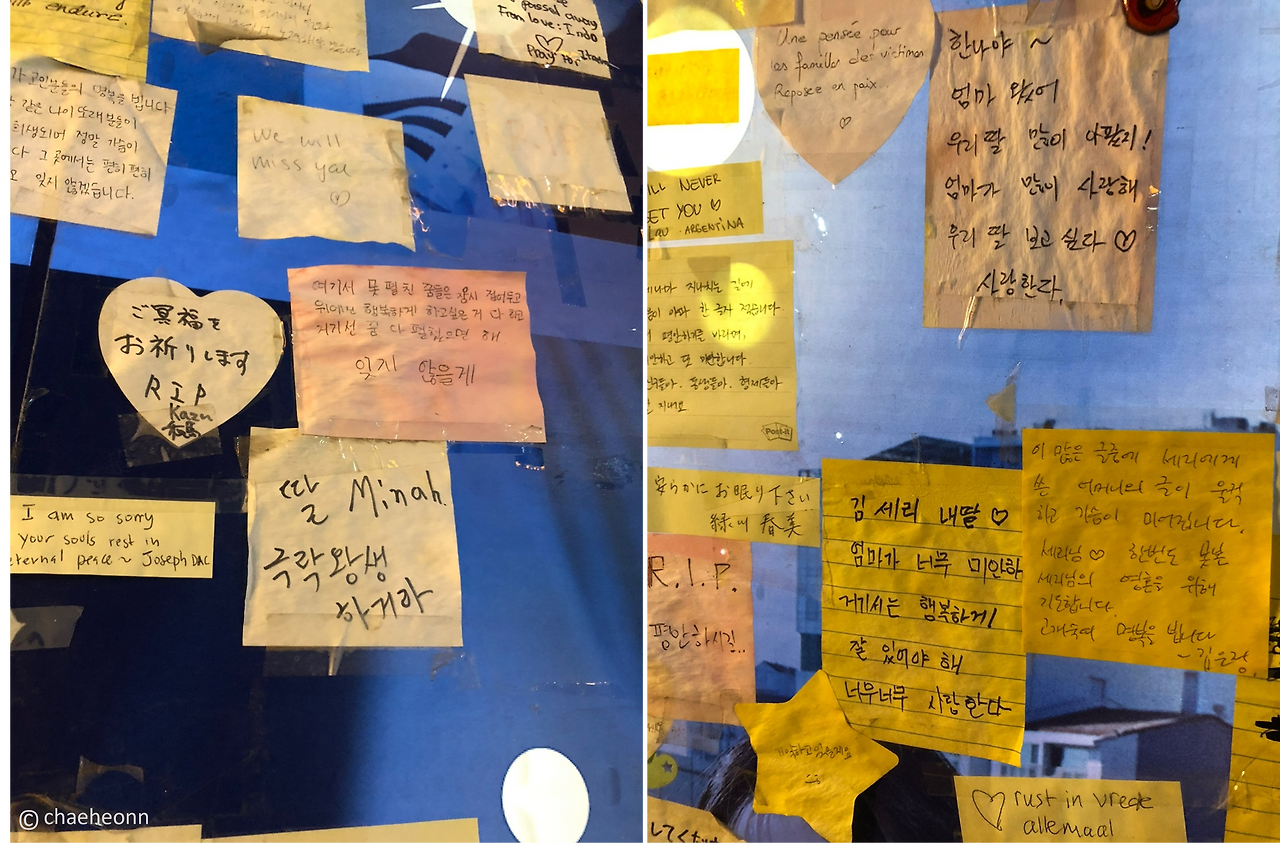 endure.
passed away
From love: Indo
Pray For
고인분들의 명복을 빕니다
같은 나이 또래분들이
희생되어 정말 가슴이
다 그곳에서는 편히 편히
잊지 않겠습니다.
We will
miss ya
ご冥福を
お祈りします
RIP
Kazu
여기서 못 펼친 꿈들은 잠시 접어두고
위에선 행복하게 하고싶은 거 다 하고
거기선 꿈 다 펼쳤으면 해
잊지 않을게
딸 Minah.
극락왕생
하거라
I am so sorry
your souls rest in
eternal peace ~ Joseph DAC
© chaeheonn
Une pensée pour
les familles des victimes
Reposee en paix..
한나야 ~
엄마 왔어
우리딸 많이 아팠지!
엄마가 많이 사랑해
우리 딸 보고싶다 ♡
사랑한다.
ILL NEVER
GET YOU ♡
ARGENTINA
지나치는 길에
아파 한 글자 적습니다.
평안하기를 바라며,
하고 또 미안합니다
동생들아. 형제들아
지내요
Post-it
安らかにお眠り下さい
春美
R.I.P.
평안하시길..
김세리 내딸 ♡
엄마가 너무 미안하
거기서는 행복하게!
잘 있어야 해
너무너무 사랑한다
이 많은 글중에 세리에게
쓴 어머니의 글이 울컥
하고 가슴이 미어집니다.
세리님 ♡ 한번도 못본
세리님의 영혼을 위해
기도합니다.
고개숙여 명복을 빕니다
♡ rust in vrede
allemaal